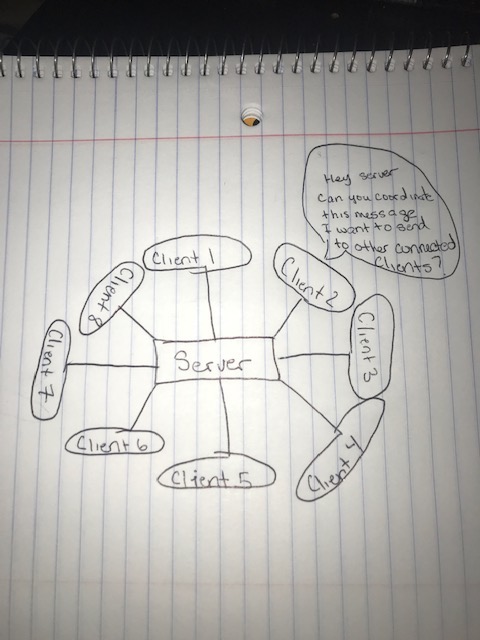 Hey server
can you coordinate
this message
I want to send
to other connected
Clients?
Client 1
Client 2
Client 8
Client 3
Server
Client 7
Client 6
Client 4
Client 5